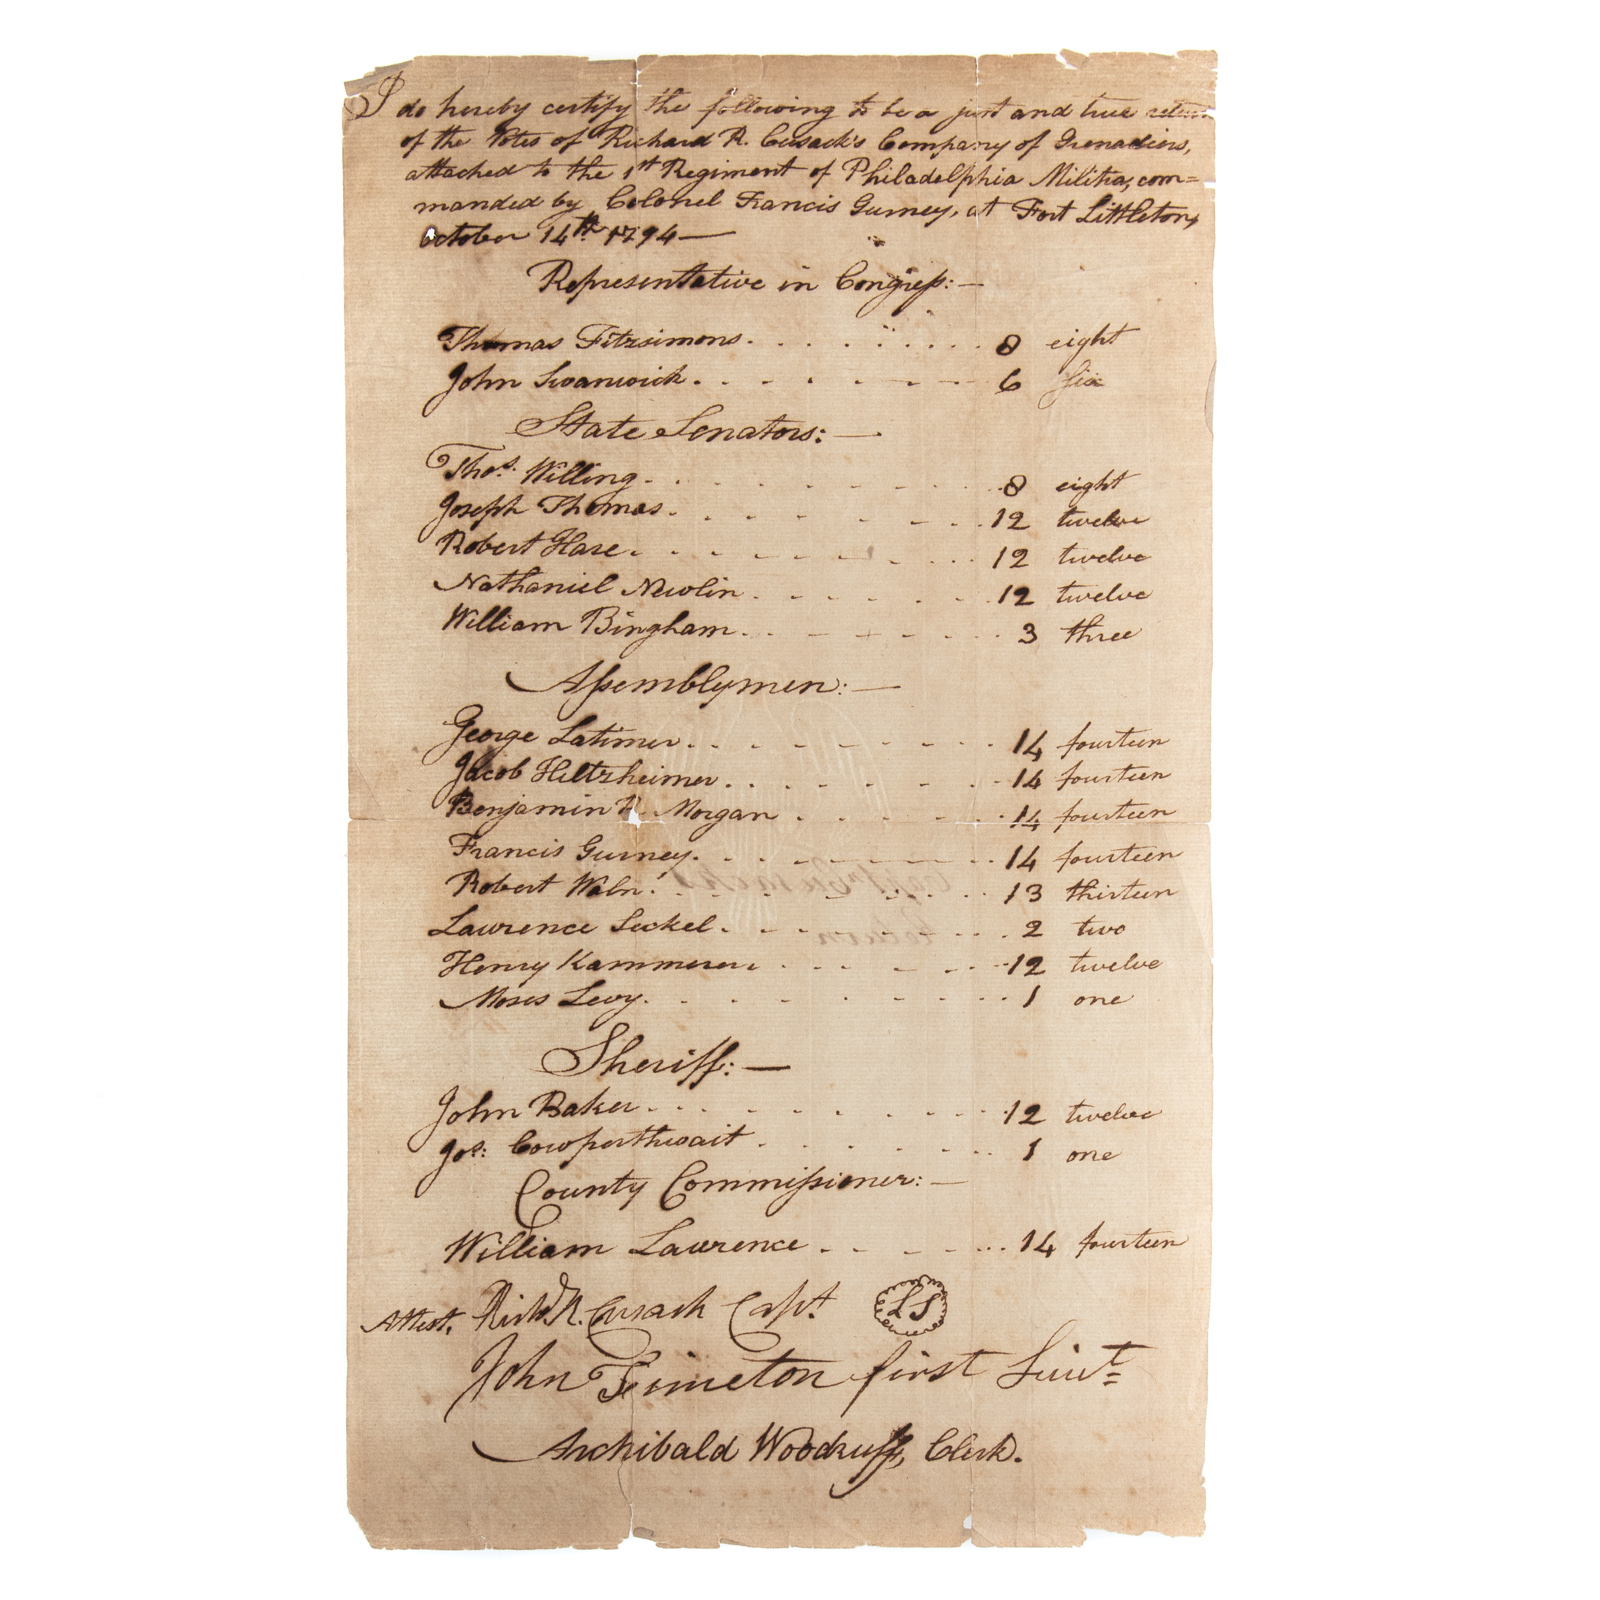 I do hereby certify the following to be a just and true return
of the Votes of Richard R. Cusack's Company of Grenadiers,
attached to the 1st Regiment of Philadelphia Militia, com=
manded by Colonel Francis Gurney, at Fort Littleton,
October 14th 1794—
Representative in Congress:—
Thomas Fitzsimons. 8 eight
John Swanwick. 6 six
State Senators:—
Thos. Willing. 8 eight
Joseph Thomas. 12 twelve
Robert Hare. 12 twelve
Nathaniel Newlin. 12 twelve
William Bingham. 3 three
Assemblymen:—
George Latimer. 14 fourteen
Jacob Hiltzheimer. 14 fourteen
Benjamin R. Morgan 14 fourteen
Francis Gurney. 14 fourteen
Robert Waln. 13 thirteen
Lawrence Seckel. 2 two
Henry Kammerer. 12 twelve
Moses Levy. 1 one
Sheriff:—
John Baker. 12 twelve
Jos: Cowperthwait 1 one
County Commissioner:—
William Lawrence 14 fourteen
Attest. Richd. R. Cusack Capt. LS
John first Lieut
Archibald Woodruff, Clerk.